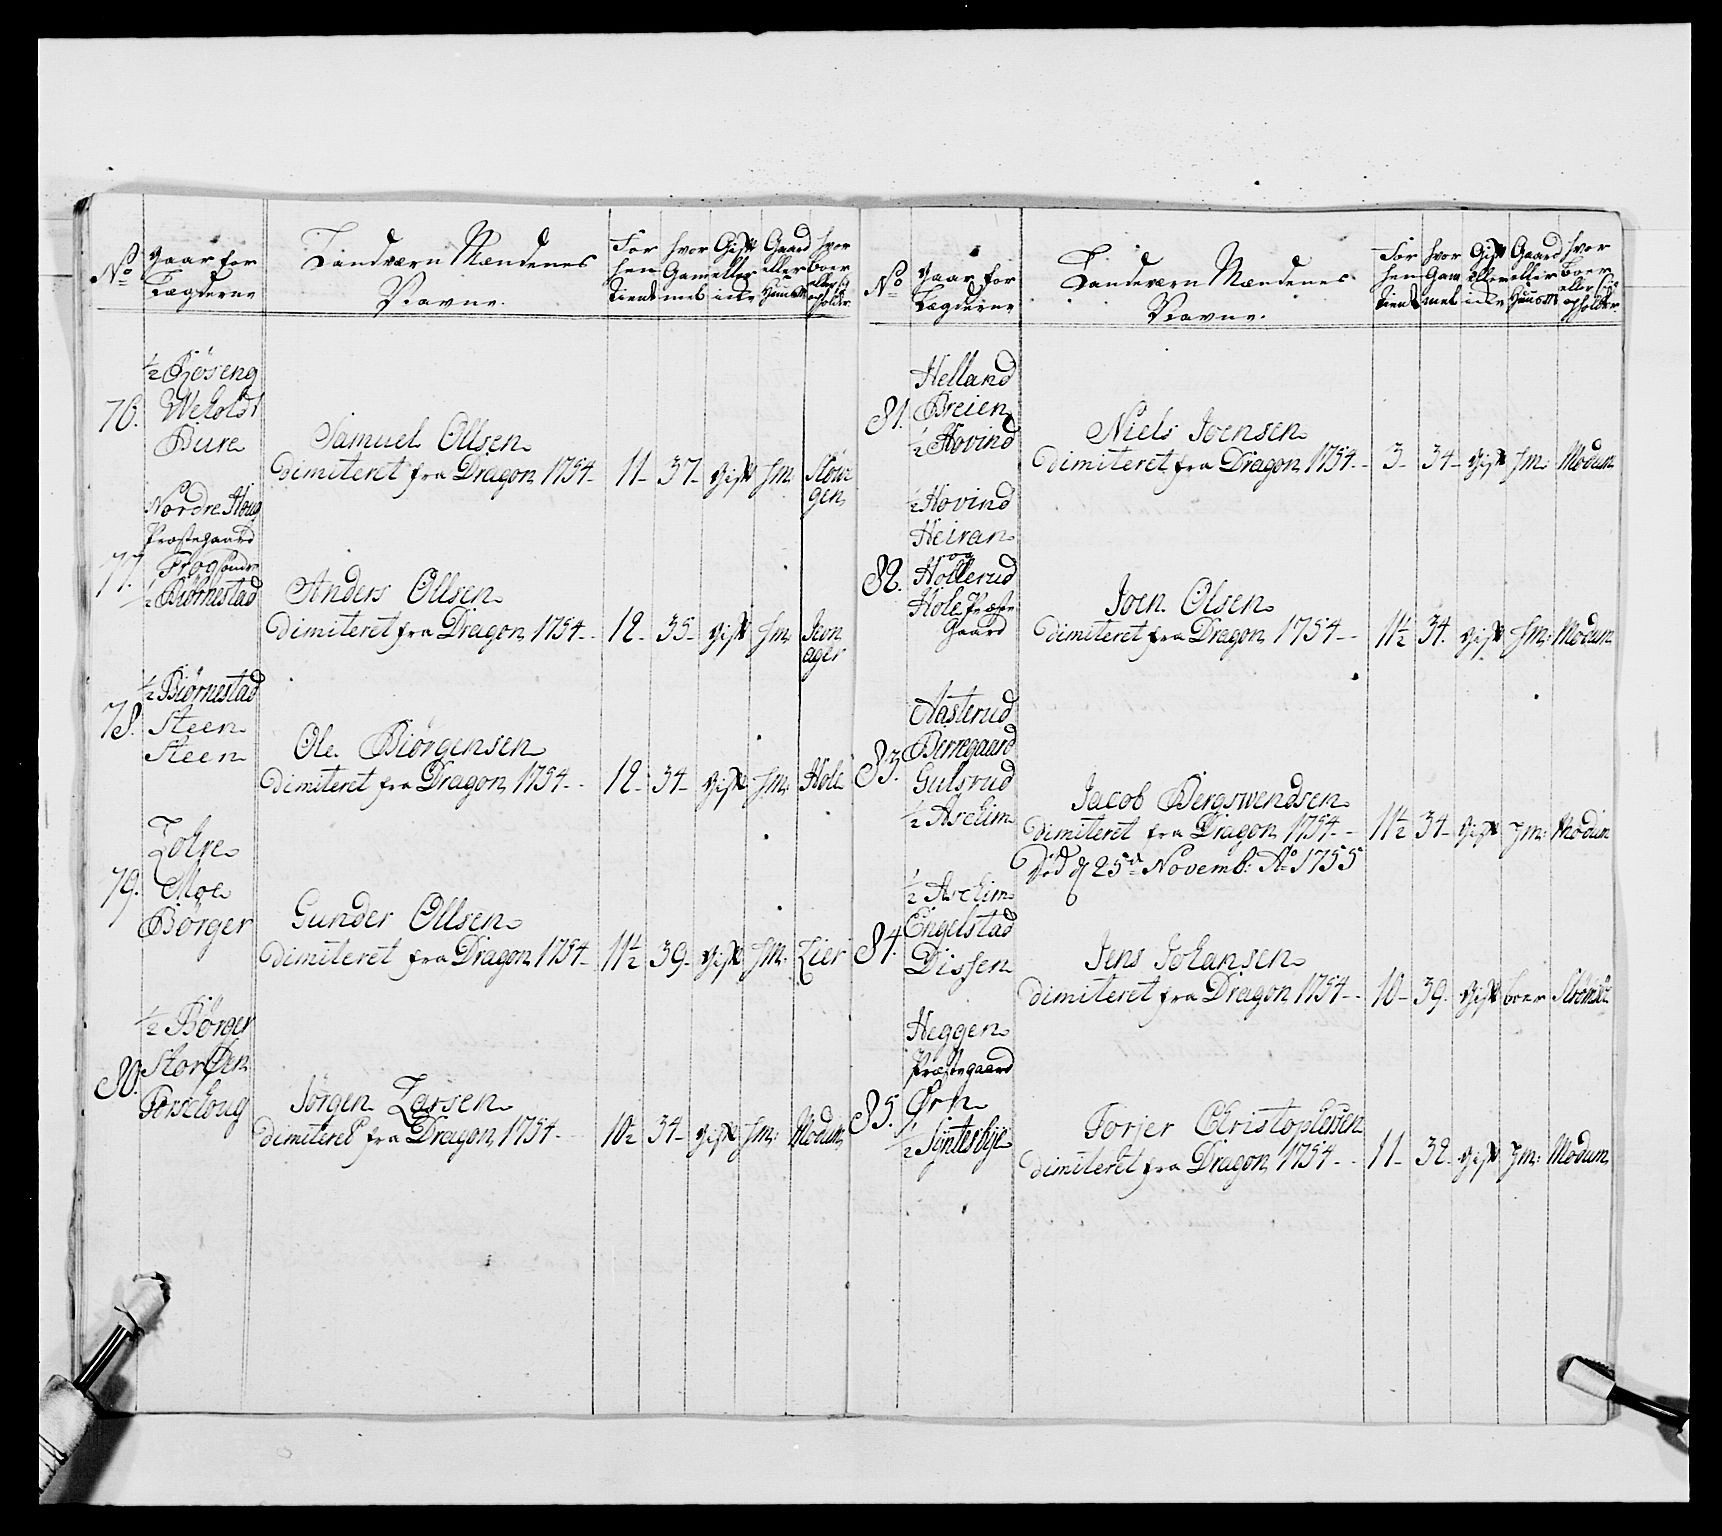 No
Gaar for
Lægderne
Landværn Mændenes
Navne.
For
hen
tient
hvor
Gam
mel
Gift
eller
icke
Gaard
eller
Huusm
hvor
boer
eller sig
opholder
76.
½ Røseng
Weholdt
Bure
Samuel Ollsen
Dimiteret fra Dragon 1754
11 37 Gift Hm:
gen
77.
Nordre Houg
Præstegaard
Frog søndre
½ Biørnestad
Anders Ollsen
Dimiteret fra Dragon 1754
12 35 Gift Hm: Jevn
ager
78.
½ Biørnestad
Steen
Steen
Ole Biørgensen
Dimiteret fra Dragon 1754
12 34 Gift Hm: Hole
79.
Lohre
Moe
Børger
Gunder Ollsen
Dimiteret fra Dragon 1754
11½ 39 Gift Hm: Lier
80.
½ Børger
Storøen
Jørgen Larsen
Dimiteret fra Dragon 1754
10½ 34 Gift Hm: Modum
No
Gaar for
Lægderne
Landeværn Mændenes
Navne.
For
hen
tient
hvor
Gam
mel
Gift
eller
icke
Gaard
eller
Huusm
hvor
boer
eller sig
opholder
81.
Helland
Breien
½ Hovind
Niels Joensen
Dimiteret fra Dragon 1754
3 34 Gift Hm: Modum
82.
½ Hovind
Heiran
og
Hollerud
Hole Præste
Gaard
Joen Olsen
Dimiteret fra Dragon 1754
11½ 34 Gift Hm: Modum
83.
Aasterud
Berregaard
Gulsrud
½ Aschim
Jacob Bergswendsen
Dimiteret fra Dragon 1754
11½ 34 Gift Hm: Modum
Død d 25de Novemb: Ao 1755
84.
½ Aschim
Engelstad
Dissen
Jens Johansen
Dimiteret fra Dragon 1754
10 39 Gift boer
85.
Heggen
Præstegaard
Ørn
Torjer Christophersen
Dimiteret fra Dragon 1754
11 32 Gift Hm: Modum